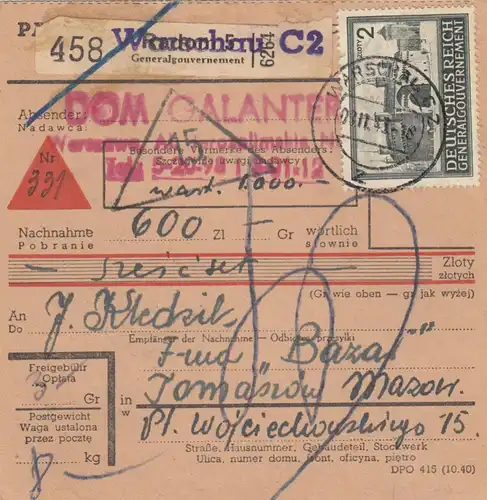 458 Warschau C2
Generalgouvernement
6294
2
ZŁOTY
DEUTSCHES REICH
GENERALGOUVERNEMENT
WARSCHAU C 2
Absender:
Nadawca:
DOM GALANTER
15
Besondere Vermerke des Absenders:
Szczególne uwagi nadawcy
wart. 1.000.-
Nr
331
Nachnahme 600 Zl — Gr wörtlich
Pobranie słownie
— sześćset — Złoty
złotych
(Gr wie oben — gr jak wyżej)
An
Do
J. Kłedzik
Empfänger der Nachnahme — Odbiorca przesyłki
Fma "Bazar"
Freigebühr
Opłata
Gr
in
w
Tomaszów Mazow.
Postgewicht
Waga ustalona
przez pocztę
Pl. Wojciechowskiego 15.
8 — kg
Straße, Hausnummer, Gebäudeteil, Stockwerk
Ulica, numer domu, front, oficyna, piętro
DPO 415 (10.40)